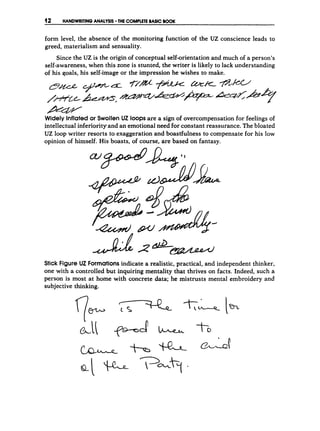 12 HANDWRITING ANALYSIS - THE COMPLETE BASIC BOOK
form level, the absence of the monitoring function of the UZ conscience leads to
greed, materialism and sensuality.
Since the UZ is the origin of conceptual self-orientation and much of a person's
self-awareness, when this zone is stunted, the writer is likely to lack understanding
of his goals, his self-image or the impression he wishes to make.
Once upon a time there were three
little bears, mama bear papa bear, baby
bear
Widely Inflated or Swollen UZ loops are a sign of overcompensation for feelings of
intellectual inferiority and an emotional need for constant reassurance. The bloated
UZ loop writer resorts to exaggeration and boastfulness to compensate for his low
opinion of himself. His boasts, of course, are based on fantasy.
a good buy"
spouse would have
option of the
proceeds - lump
sum or monthly-
while 2nd career
Stick Figure UZ Formations indicate a realistic, practical, and independent thinker,
one with a controlled but inquiring mentality that thrives on facts. Indeed, such a
person is most at home with concrete data; he mistrusts mental embroidery and
subjective thinking.
Now is the time for
all good men to
Come to the aid
of the Party.